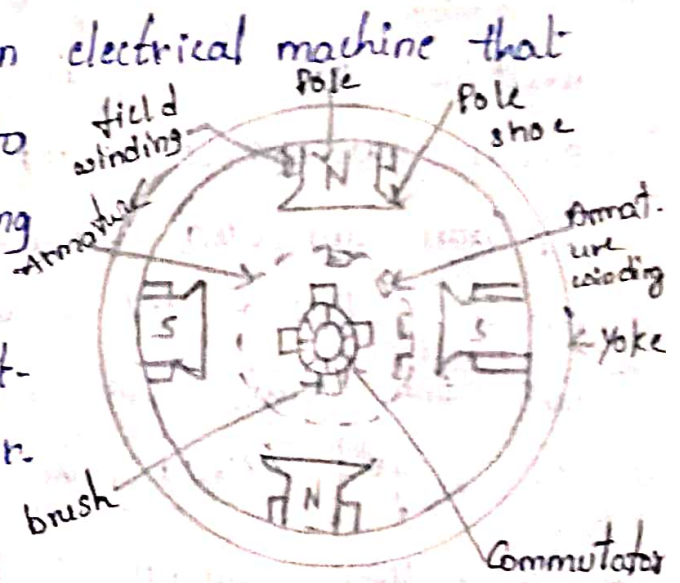 n electrical machine that
Pole
field
winding
Pole
shoe
o
ng
Armature
Armat-
ure
winding
N
S
S
Yoke
t-
r-
N
brush
Commutator